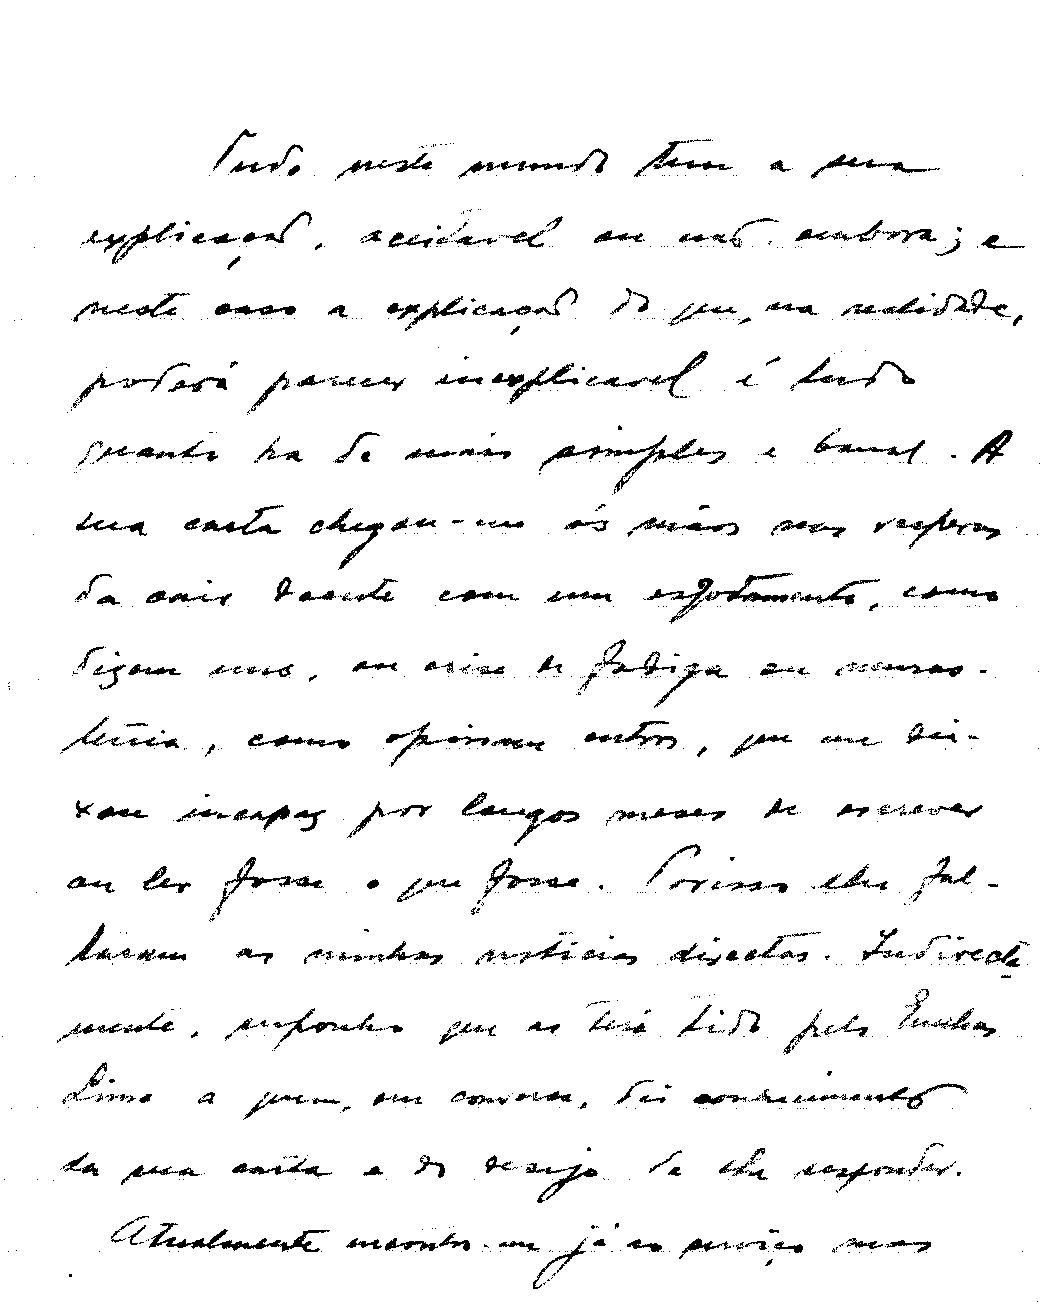 Tudo neste mundo tem a sua
explicação, aceitavel ou não embora; e
neste caso a explicação do que, na realidade,
poderá parecer inexplicavel é tudo
quanto ha de mais simples e banal. A
sua carta chegou-me ás mãos nas vesperas
da cair doente com um esgotamento, como
dizem uns, ou crise de fadiga ou neuras-
tenia, como opinaram outros, que me dei-
xou incapaz por longos meses de escrever
ou ler fosse o que fosse. Porisso lhe fal-
taram as minhas noticias directas. Indirecta
mente, suponho que as terá tido pelo
Lima a quem, em conversa, dei conhecimento
da sua carta e do desejo de lhe responder.
Atualmente encontro-me já ao serviço mas